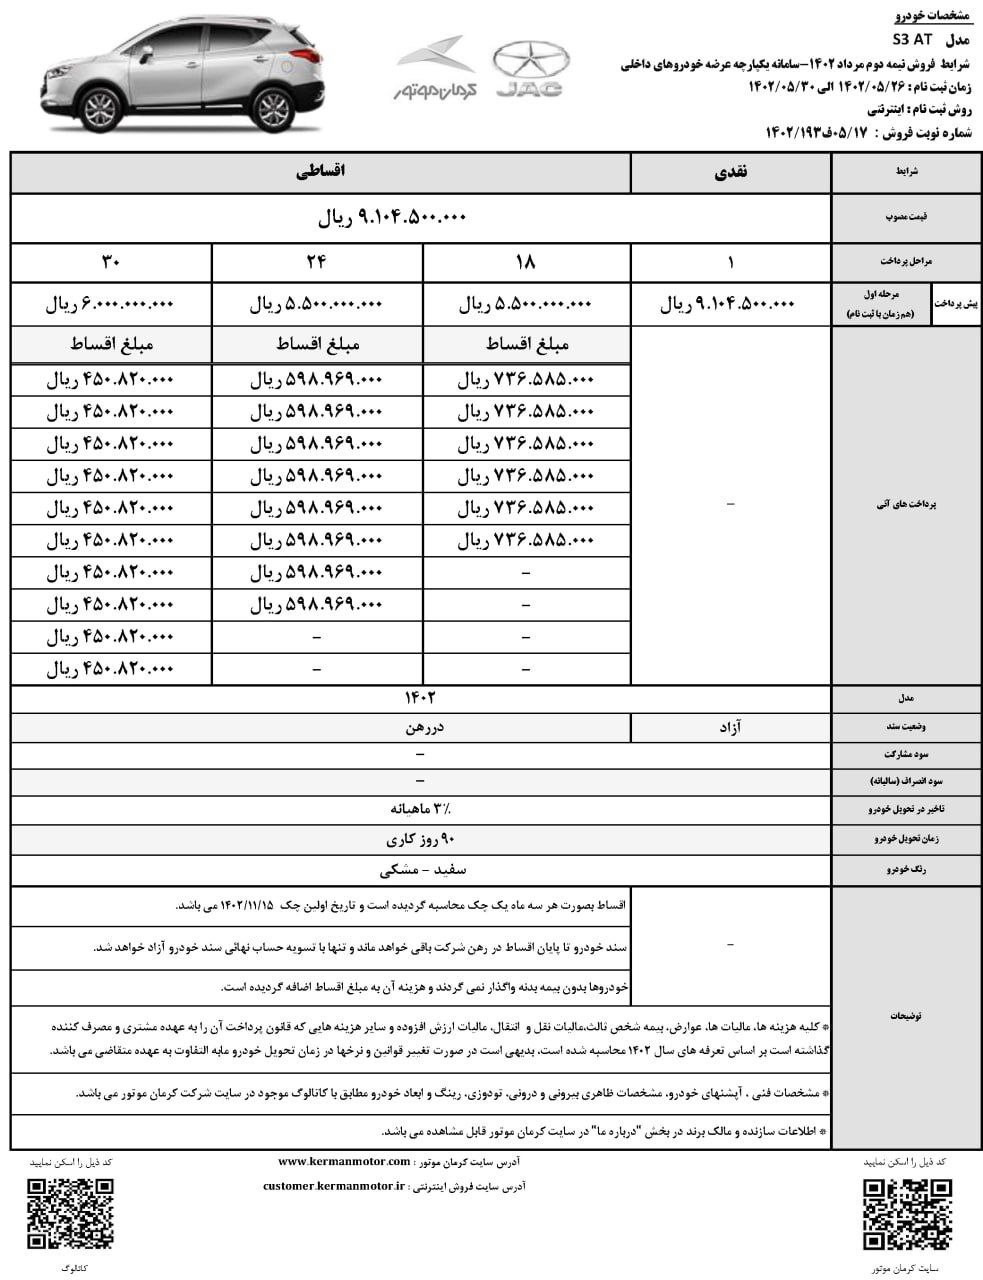 مشخصات خودرو
مدل S3 AT
شرایط فروش نیمه دوم مرداد ۱۴۰۲-سامانه یکپارچه عرضه خودروهای داخلی
زمان ثبت نام : ۱۴۰۲/۰۵/۲۶ الی ۱۴۰۲/۰۵/۳۰
روش ثبت نام : اینترنتی
شماره نوبت فروش : ۰۵/۱۷ف۱۴۰۲/۱۹۳
کرمان موتور
JAC
شرایط نقدی اقساطی
قیمت مصوب ۹.۱۰۴.۵۰۰.۰۰۰ ریال
مراحل پرداخت ۱ ۱۸ ۲۴ ۳۰
پیش پرداخت مرحله اول (هم زمان با ثبت نام) ۹.۱۰۴.۵۰۰.۰۰۰ ریال ۵.۵۰۰.۰۰۰.۰۰۰ ریال ۵.۵۰۰.۰۰۰.۰۰۰ ریال ۶.۰۰۰.۰۰۰.۰۰۰ ریال
پرداخت های آتی - مبلغ اقساط مبلغ اقساط مبلغ اقساط
۷۳۶.۵۸۵.۰۰۰ ریال ۵۹۸.۹۶۹.۰۰۰ ریال ۴۵۰.۸۲۰.۰۰۰ ریال
۷۳۶.۵۸۵.۰۰۰ ریال ۵۹۸.۹۶۹.۰۰۰ ریال ۴۵۰.۸۲۰.۰۰۰ ریال
۷۳۶.۵۸۵.۰۰۰ ریال ۵۹۸.۹۶۹.۰۰۰ ریال ۴۵۰.۸۲۰.۰۰۰ ریال
۷۳۶.۵۸۵.۰۰۰ ریال ۵۹۸.۹۶۹.۰۰۰ ریال ۴۵۰.۸۲۰.۰۰۰ ریال
۷۳۶.۵۸۵.۰۰۰ ریال ۵۹۸.۹۶۹.۰۰۰ ریال ۴۵۰.۸۲۰.۰۰۰ ریال
۷۳۶.۵۸۵.۰۰۰ ریال ۵۹۸.۹۶۹.۰۰۰ ریال ۴۵۰.۸۲۰.۰۰۰ ریال
- ۵۹۸.۹۶۹.۰۰۰ ریال ۴۵۰.۸۲۰.۰۰۰ ریال
- ۵۹۸.۹۶۹.۰۰۰ ریال ۴۵۰.۸۲۰.۰۰۰ ریال
- - ۴۵۰.۸۲۰.۰۰۰ ریال
- - ۴۵۰.۸۲۰.۰۰۰ ریال
مدل ۱۴۰۲
وضعیت سند آزاد دررهن
سود مشارکت -
سود انصراف (سالیانه) -
تاخیر در تحویل خودرو ۳٪ ماهیانه
زمان تحویل خودرو ۹۰ روز کاری
رنگ خودرو سفید - مشکی
توضیحات -
اقساط بصورت هر سه ماه یک چک محاسبه گردیده است و تاریخ اولین چک ۱۴۰۲/۱۱/۱۵ می باشد.
سند خودرو تا پایان اقساط در رهن شرکت باقی خواهد ماند و تنها با تسویه حساب نهائی سند خودرو آزاد خواهد شد.
خودروها بدون بیمه بدنه واگذار نمی گردند و هزینه آن به مبلغ اقساط اضافه گردیده است.
* کلیه هزینه ها، مالیات ها، عوارض، بیمه شخص ثالث،مالیات نقل و انتقال، مالیات ارزش افزوده و سایر هزینه هایی که قانون پرداخت آن را به عهده مشتری و مصرف کننده
گذاشته است بر اساس تعرفه های سال ۱۴۰۲ محاسبه شده است، بدیهی است در صورت تغییر قوانین و نرخها در زمان تحویل خودرو مابه التفاوت به عهده متقاضی می باشد.
* مشخصات فنی ، آپشنهای خودرو، مشخصات ظاهری بیرونی و درونی، تودوزی، رینگ و ابعاد خودرو مطابق با کاتالوگ موجود در سایت شرکت کرمان موتور می باشد.
* اطلاعات سازنده و مالک برند در بخش "درباره ما" در سایت کرمان موتور قابل مشاهده می باشد.
کد ذیل را اسکن نمایید
آدرس سایت کرمان موتور : www.kermanmotor.com
کد ذیل را اسکن نمایید
آدرس سایت فروش اینترنتی : customer.kermanmotor.ir
سایت کرمان موتور
کاتالوگ